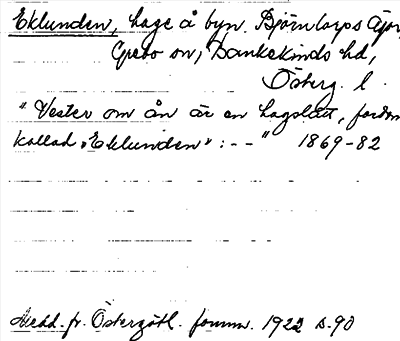 Eklunden, hage å byn Björntorps ägor,
Grebo sn, Bankekinds hd,
Österg. l.
"Vester om ån är en hagslått, fordom
kallad "Eklunden": -- " 1869-82
Medd. fr. Östergötl. fornm. 1922 s. 90